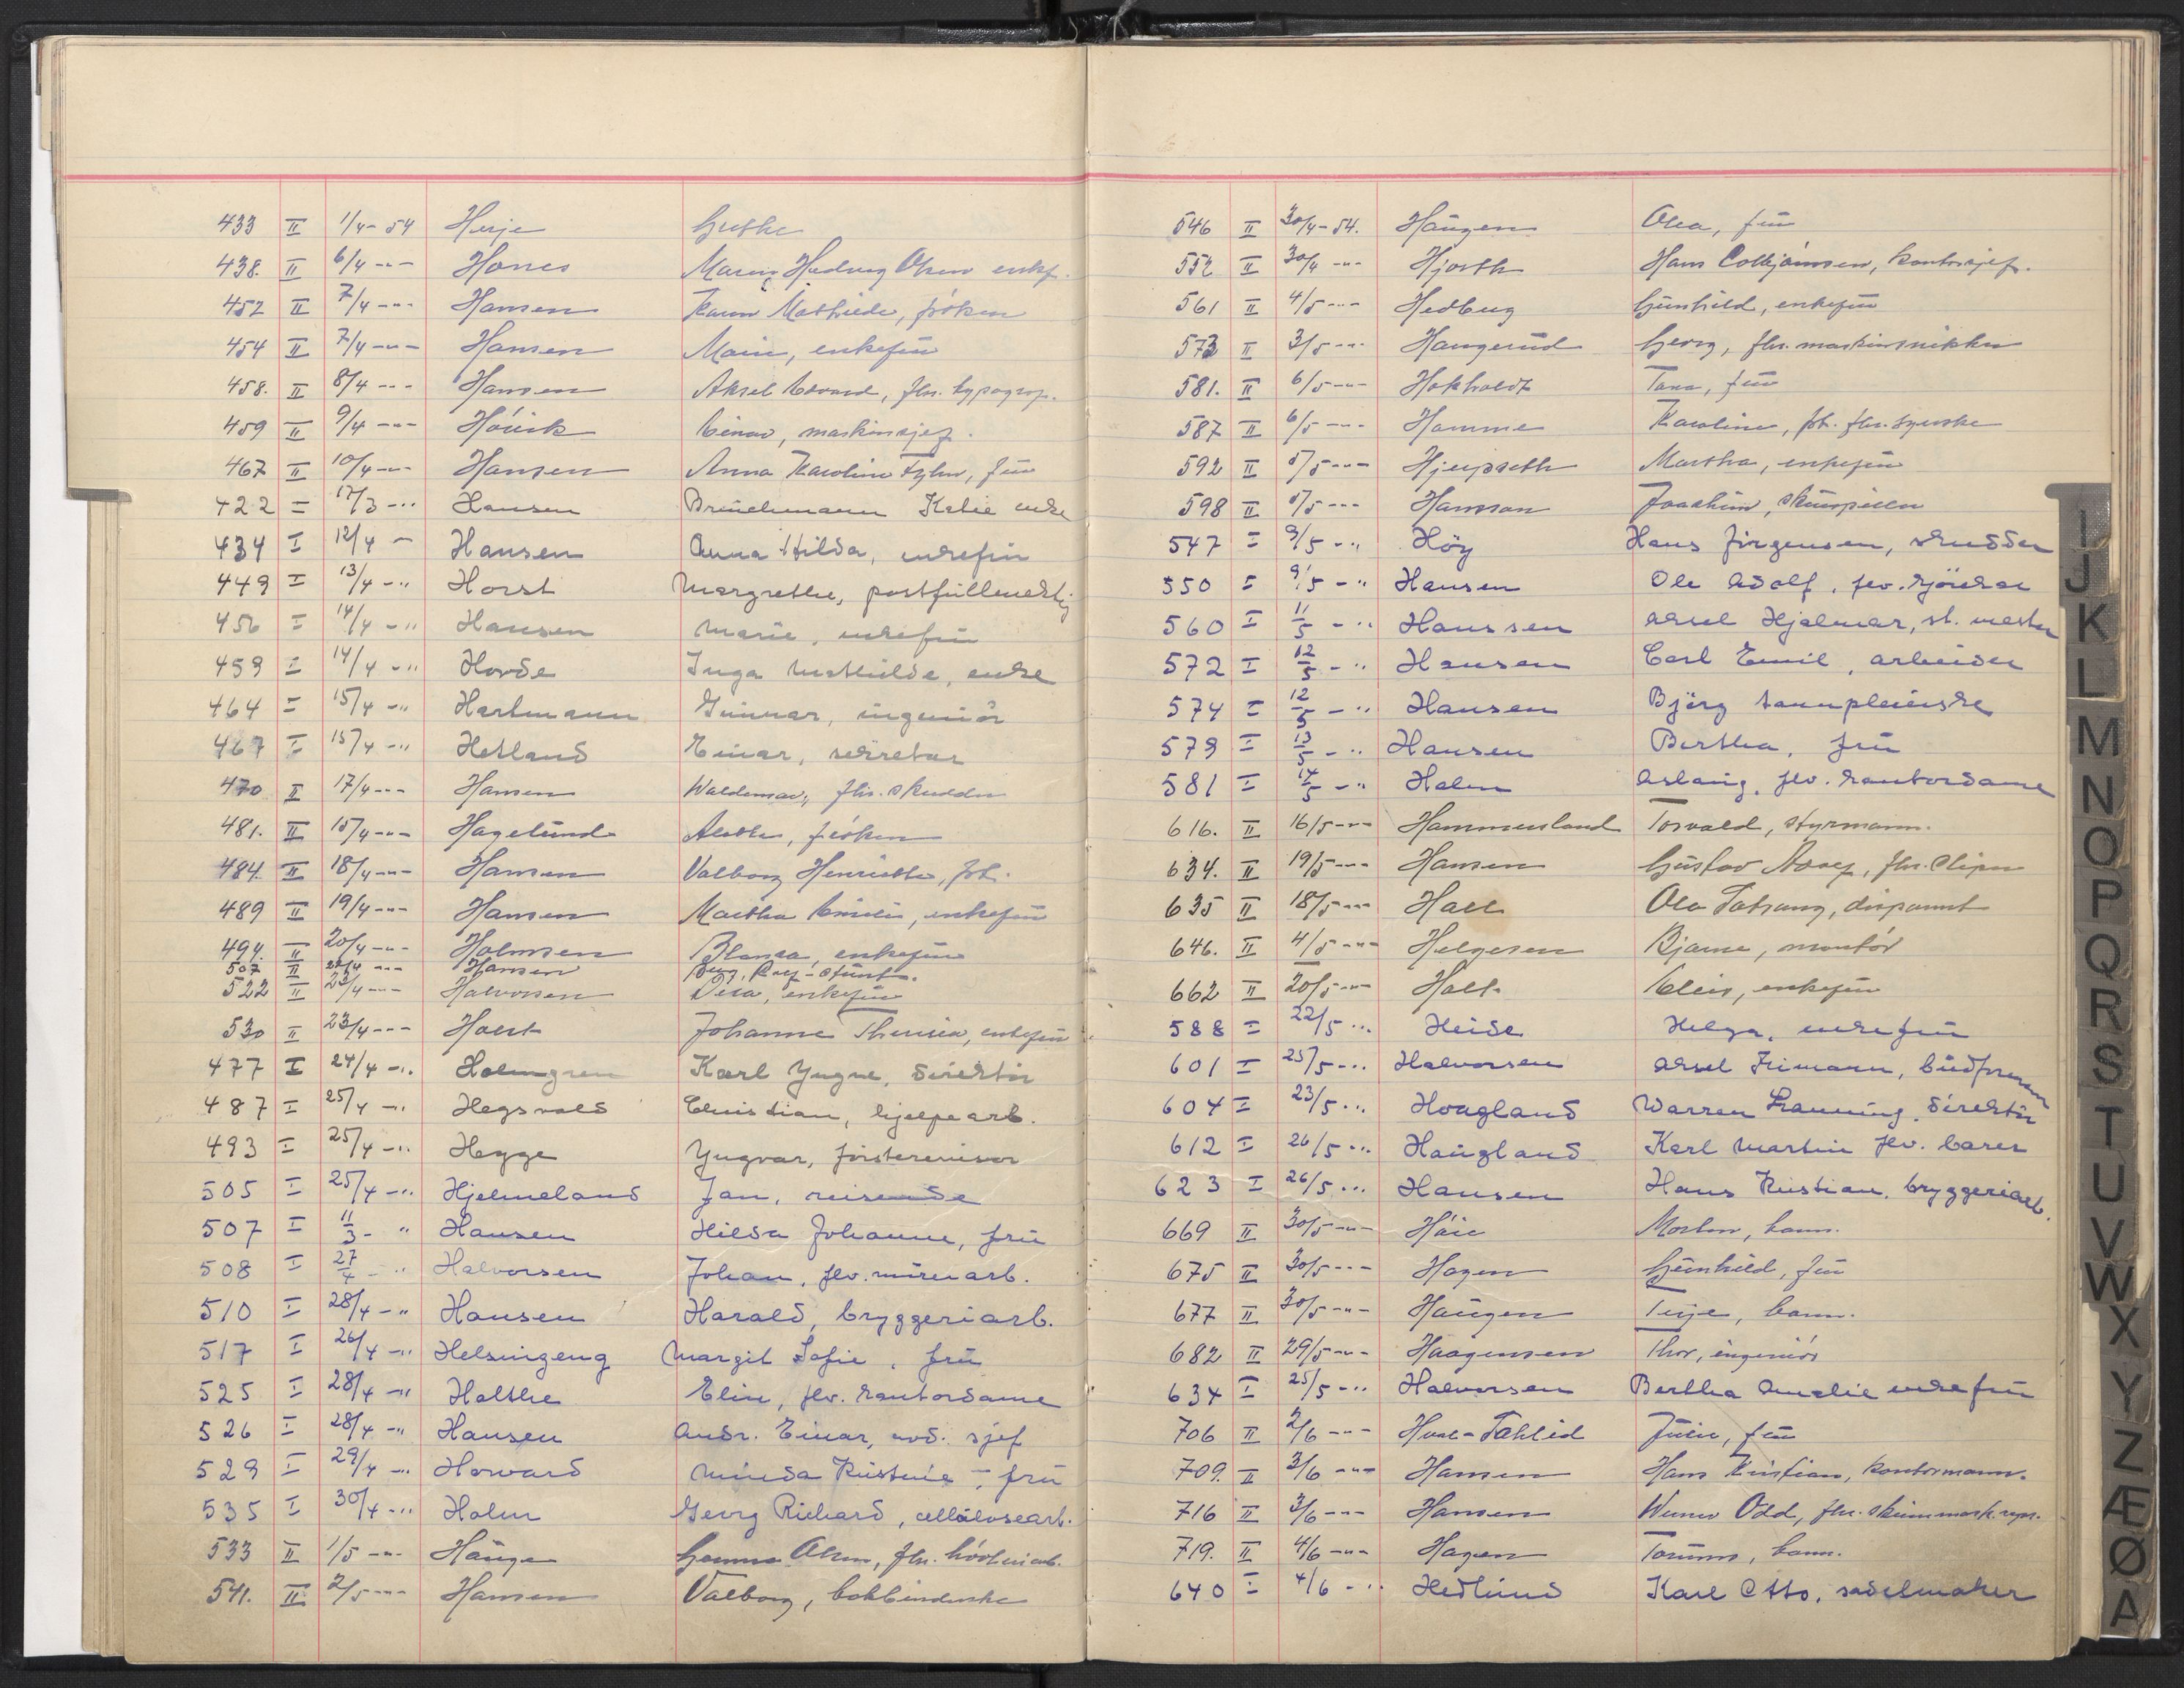 433 II 1/4-54 Herje Grethe
438. II 6/4 -"- Hones Hedvig Olsen enkef.
452 II 7/4 -"- Hansen Karen Mathilde, frøken
454 II 7/4 -"- Hansen Marie, enkefrü
458. II 8/4 -"- Hansen Aksel Edvard, fhv. typogrf.
459 II 9/4 -"- Einar, maskinsjef.
467 II 10/4 -"- Hansen Anna Karoline frü
422 I 17/3 -"- Hansen Brünchmann enke
434 I 12/4 - Hansen Anna Hilda, enkefrü
449 I 13/4 -" Horst Margrethe, postfüllmektig
456 I 14/4 -" Hansen Marie, enkefrü
459 I 14/4 -" Hovde Inga Mathilde, enke
464 I 15/4 -" Hartmann Günnar, ingeniör
467 I 15/4 -" Hetland Einar, sekretær
470 II 17/4 -"- Hansen Waldemar, fhv. skredder
481. II 15/4 -"- Hagelünd fröken
484. II 18/4 -"- Hansen Valborg Henriette, frk.
489 II 19/4 -"- Hansen Martha Emilie, enkefrü
494. II 20/4 -"- Holmsen Blanca, enkefrü
507 II 22/4 -"- Hansen
522 II 23/4 -"- Halvorsen enkefrü
530 II 23/4 -"- Holst Johanne Theresia, enkefrü
477 I 24/4 -" Holmgren Karl Yngve, direktör
487 I 25/4 -" Hegsvold Christian, hjelpearb.
493 I 25/4 -" Hegge Yngvar, försterevisor
505 I 25/4 -" Hjelmeland Jan, reisende
507 I 11/3 - " Hansen Hilda Johanne, frü
508 I 27/4 - " Halvorsen Johan, fhv. mürerarb.
510 I 28/4 -" Hansen Harald, bryggeriarb.
517 I 26/4 -" Helsingeng Margit Sofie, frü
525 I 28/4 -" Holthe Elin, fhv. kontordame
526 I 28/4 -" Hansen Andr. Einar, avd. sjef
529 I 29/4 -" Howard Minda Kristine, frü
535 I 30/4 -" Holm Georg Richard, cellülosearb.
533 II 1/5 -"- Haüge
541. II 2/5 -"- Hansen Valborg, bokbinderske
546 II 30/4-54. Haügen Olea, frü
552 II 30/4 -"- Hjorth Hans kontorsjef.
561 II 4/5 -"- Hedberg Günhild, enkefrü
573 II 3/5 -"- Haugerüd Georg, fhv. maskinsnikker
581. II 6/5 -"- Hokholdt Tora, frü
587 II 6/5 -"- Hamme Karoline, frk. fhv. syerske
592 II 5/5 -"- Hjelpseth Martha, enkefrü
598 II 5/5 -"- Hansson Joachim, sküespiller
547 I 9/5 -" Höy Hans Jörgensen, skredder
550 I 9/5 -" Hansen Ole Adolf, fhv.
560 I 11/5 -" Hanssen Aksel Hjalmar, st. mester
572 I 12/5 -" Hansen Carl Emil, arbeider
574 I 12/5 -" Hansen Björg tannpleierske
579 I 13/5 -" Hansen Bertha, frü
581 I 14/5 -" Holm Aslaüg, fhv. kontordame
616. II 16/5 -"- Hammersland Torvald, styrmann.
634. II 19/5 -"- Hansen Güstav Adolf, fhv. sliper
635 II 18/5 -"- Hall Ola disponent
646. II 4/5 -"- Helgesen Bjarne, montör
662 II 20/5 -"- Holt enkefrü
588 I 22/5 -" Heide Helga, enkefrü
601 I 25/5 -" Halvorsen Aksel büdformann
604 I 23/5 -" Hoagland Warren direktör
612 I 26/5 -" Haügland Karl Martin fhv. baker
623 I 26/5 -" Hansen Hans Kristian, bryggeriarb.
669 II 30/5 -"- Morten, barn.
675 II 30/5 -"- Hagen Günhild, frü
677 II 30/5 -"- Haügen Terje, barn.
682 II 29/5 -"- Haagensen Thor, ingeniör
634 I 25/5 -" Halvorsen Bertha Amalie enkefrü
706 II 2/6 -"- Jülie, frü
709. II 3/6 -"- Hansen Hans Kristian, kontormann.
716 II 3/6 -"- Hansen Werner Odd, fhv.
719. II 4/6 -"- Hagen barn.
640 I 4/6 -" Hedlünd Karl Otto, sadelmaker
I
J
K
L
M
N
O
P
Q
R
S
T
U
V
W
X
Y
Z
Æ
Ø
A